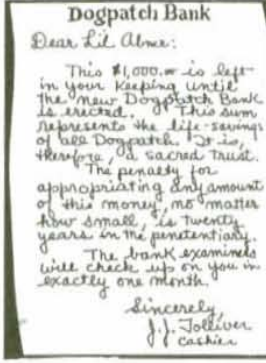 Dogpatch Bank
Dear Lil Abner:
This $1,000.00 is left
in your keeping until
the new Dogpatch Bank
is erected. This sum
represents the life-savings
of all Dogpatch. It is,
therefore, a sacred trust.
The penalty for
appropriating any amount
of this money, no matter
how small, is twenty
years in the penetentiary.
The bank examiners
will check up on you in
exactly one month.
Sincerely,
J.J. Tolliver
cashier